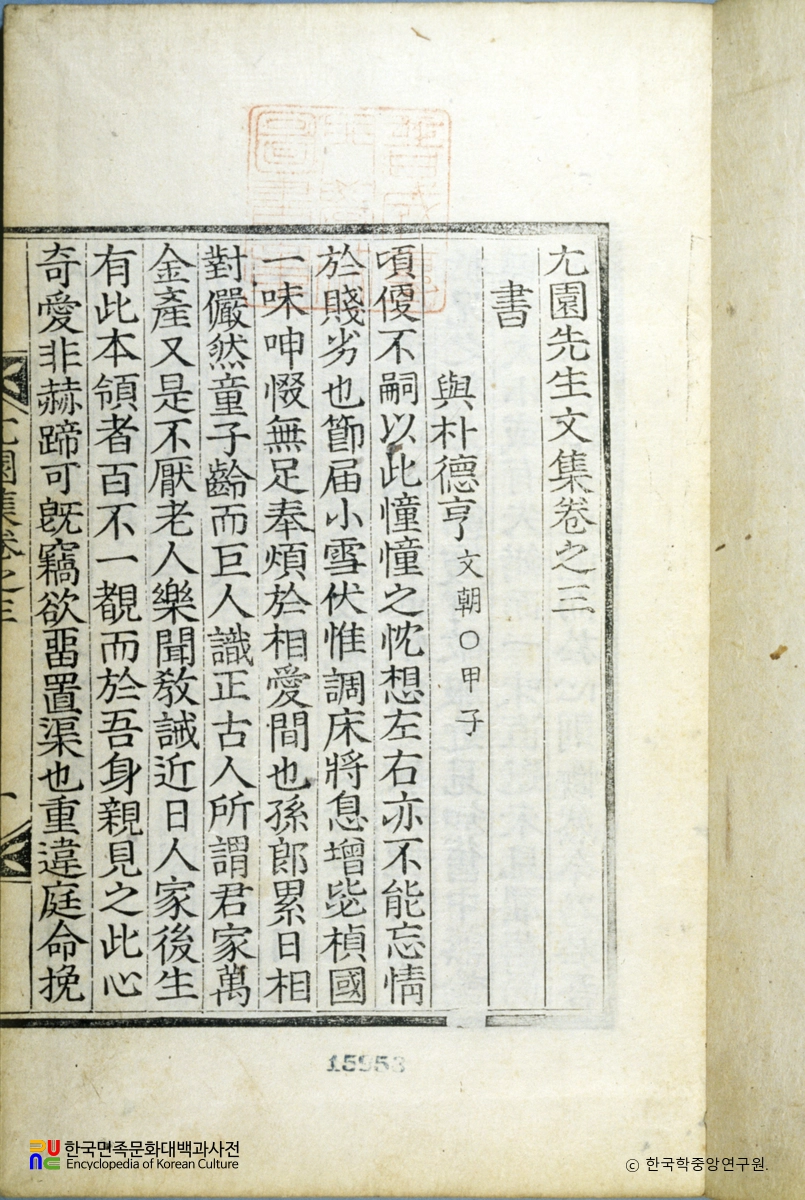 尢園先生文集卷之三
書
與朴德亨文朝○甲子
頃優不嗣以此憧憧之忱想左右亦不能忘情
於賤劣也節届小雪伏惟調床將息增毖楨國
一味呻惙無足奉煩於相愛間也孫郎累日相
對儼然童子齡而巨人識正古人所謂君家萬
金產又是不厭老人樂聞教誡近日人家後生
有此本領者百不一覩而於吾身親見之此心
奇愛非赫蹄可旣竊欲畱置渠也重違庭命挽
15953
한국민족문화대백과사전
Encyclopedia of Korean Culture
ⓒ 한국학중앙연구원.